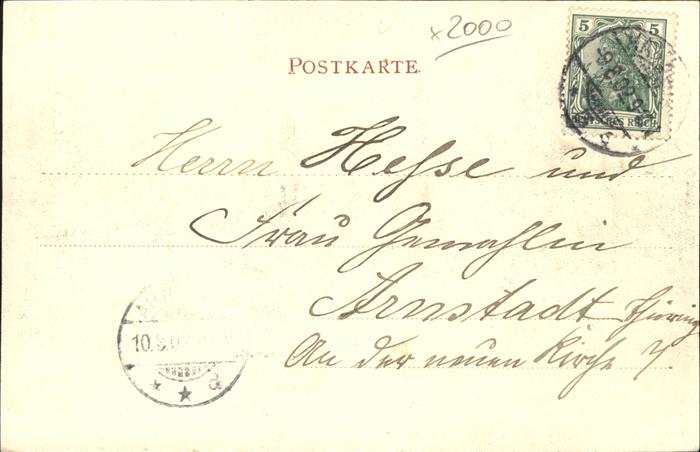 x2000
POSTKARTE.
5 5
DEUTSCHES REICH
Herrn Hesse und
Frau Gemahlin
Arnstadt Thüring
An der neuen Kirche 7.
10.
d